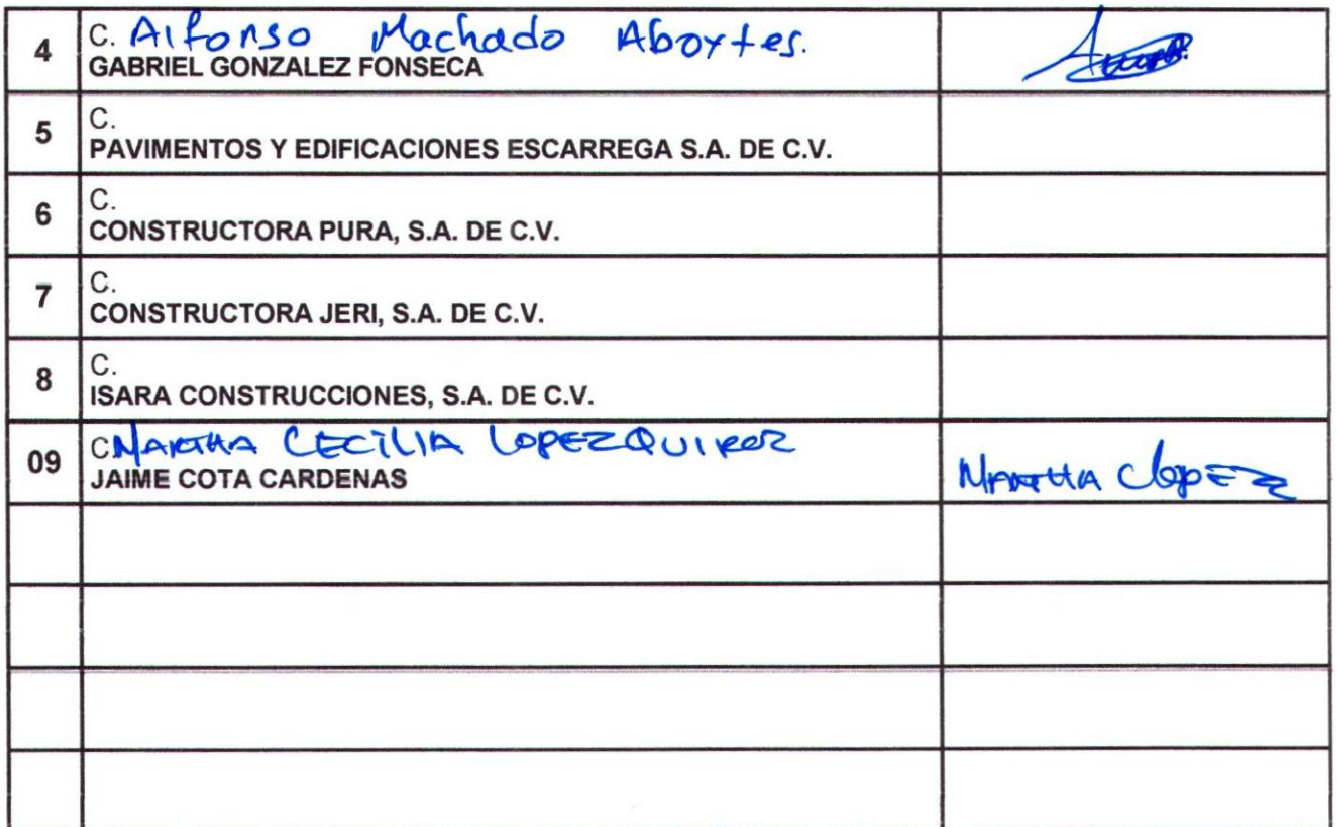 4 C. Alfonso Machado Aboytes.
GABRIEL GONZALEZ FONSECA
5 C.
PAVIMENTOS Y EDIFICACIONES ESCARREGA S.A. DE C.V.
6 C.
CONSTRUCTORA PURA, S.A. DE C.V.
7 C.
CONSTRUCTORA JERI, S.A. DE C.V.
8 C.
ISARA CONSTRUCCIONES, S.A. DE C.V.
09 C. MARTHA CECILIA LOPEZ QUIROZ
JAIME COTA CARDENAS
MARTHA C LOPEZ